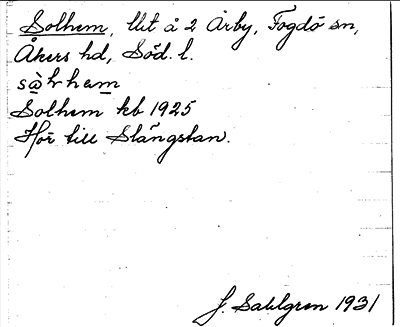 Solhem, lht å 2 Årby, Fogdö sn,
Åkers hd, Söd. l.
sὰlrham
Solhem kb 1925
Hör till Slängstan.
J. Sahlgren 1931